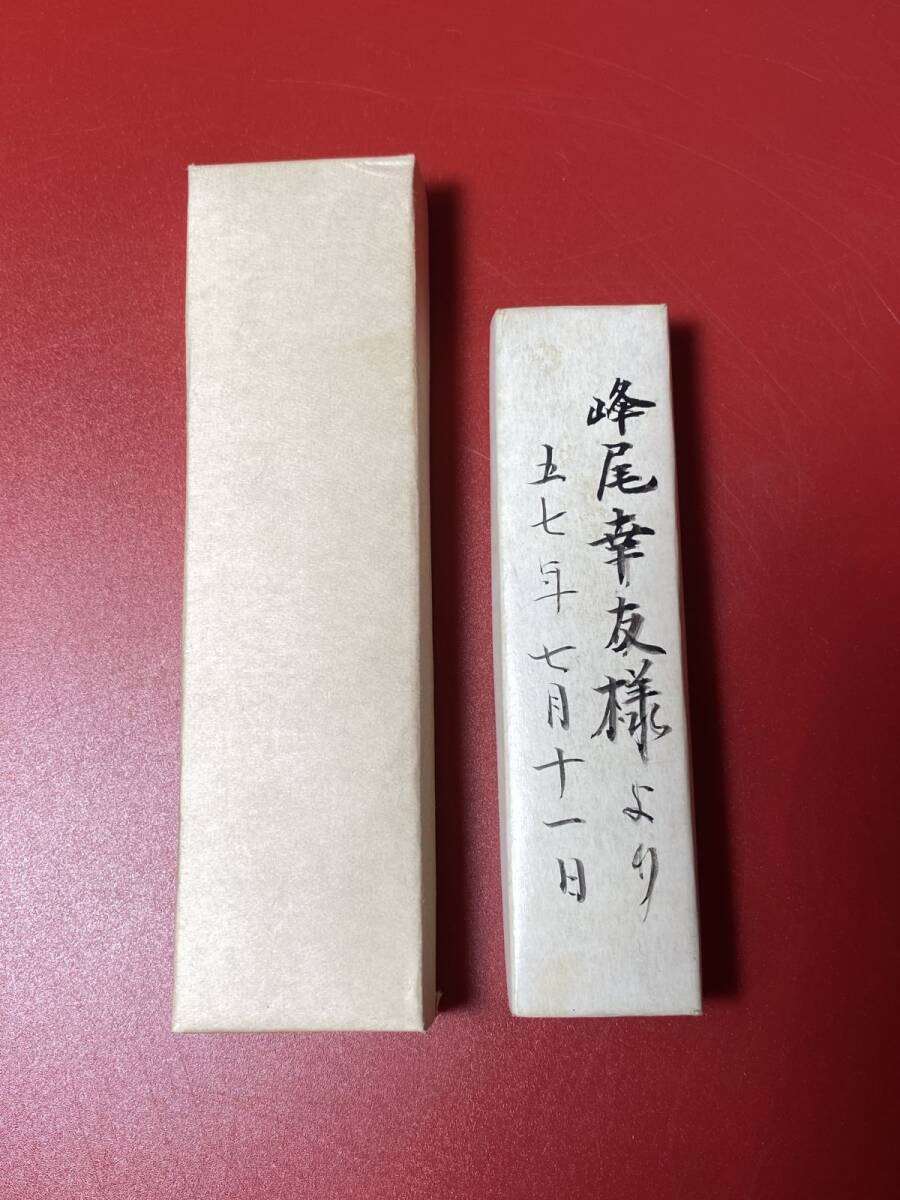 峰尾幸友様より
五七年七月十一日